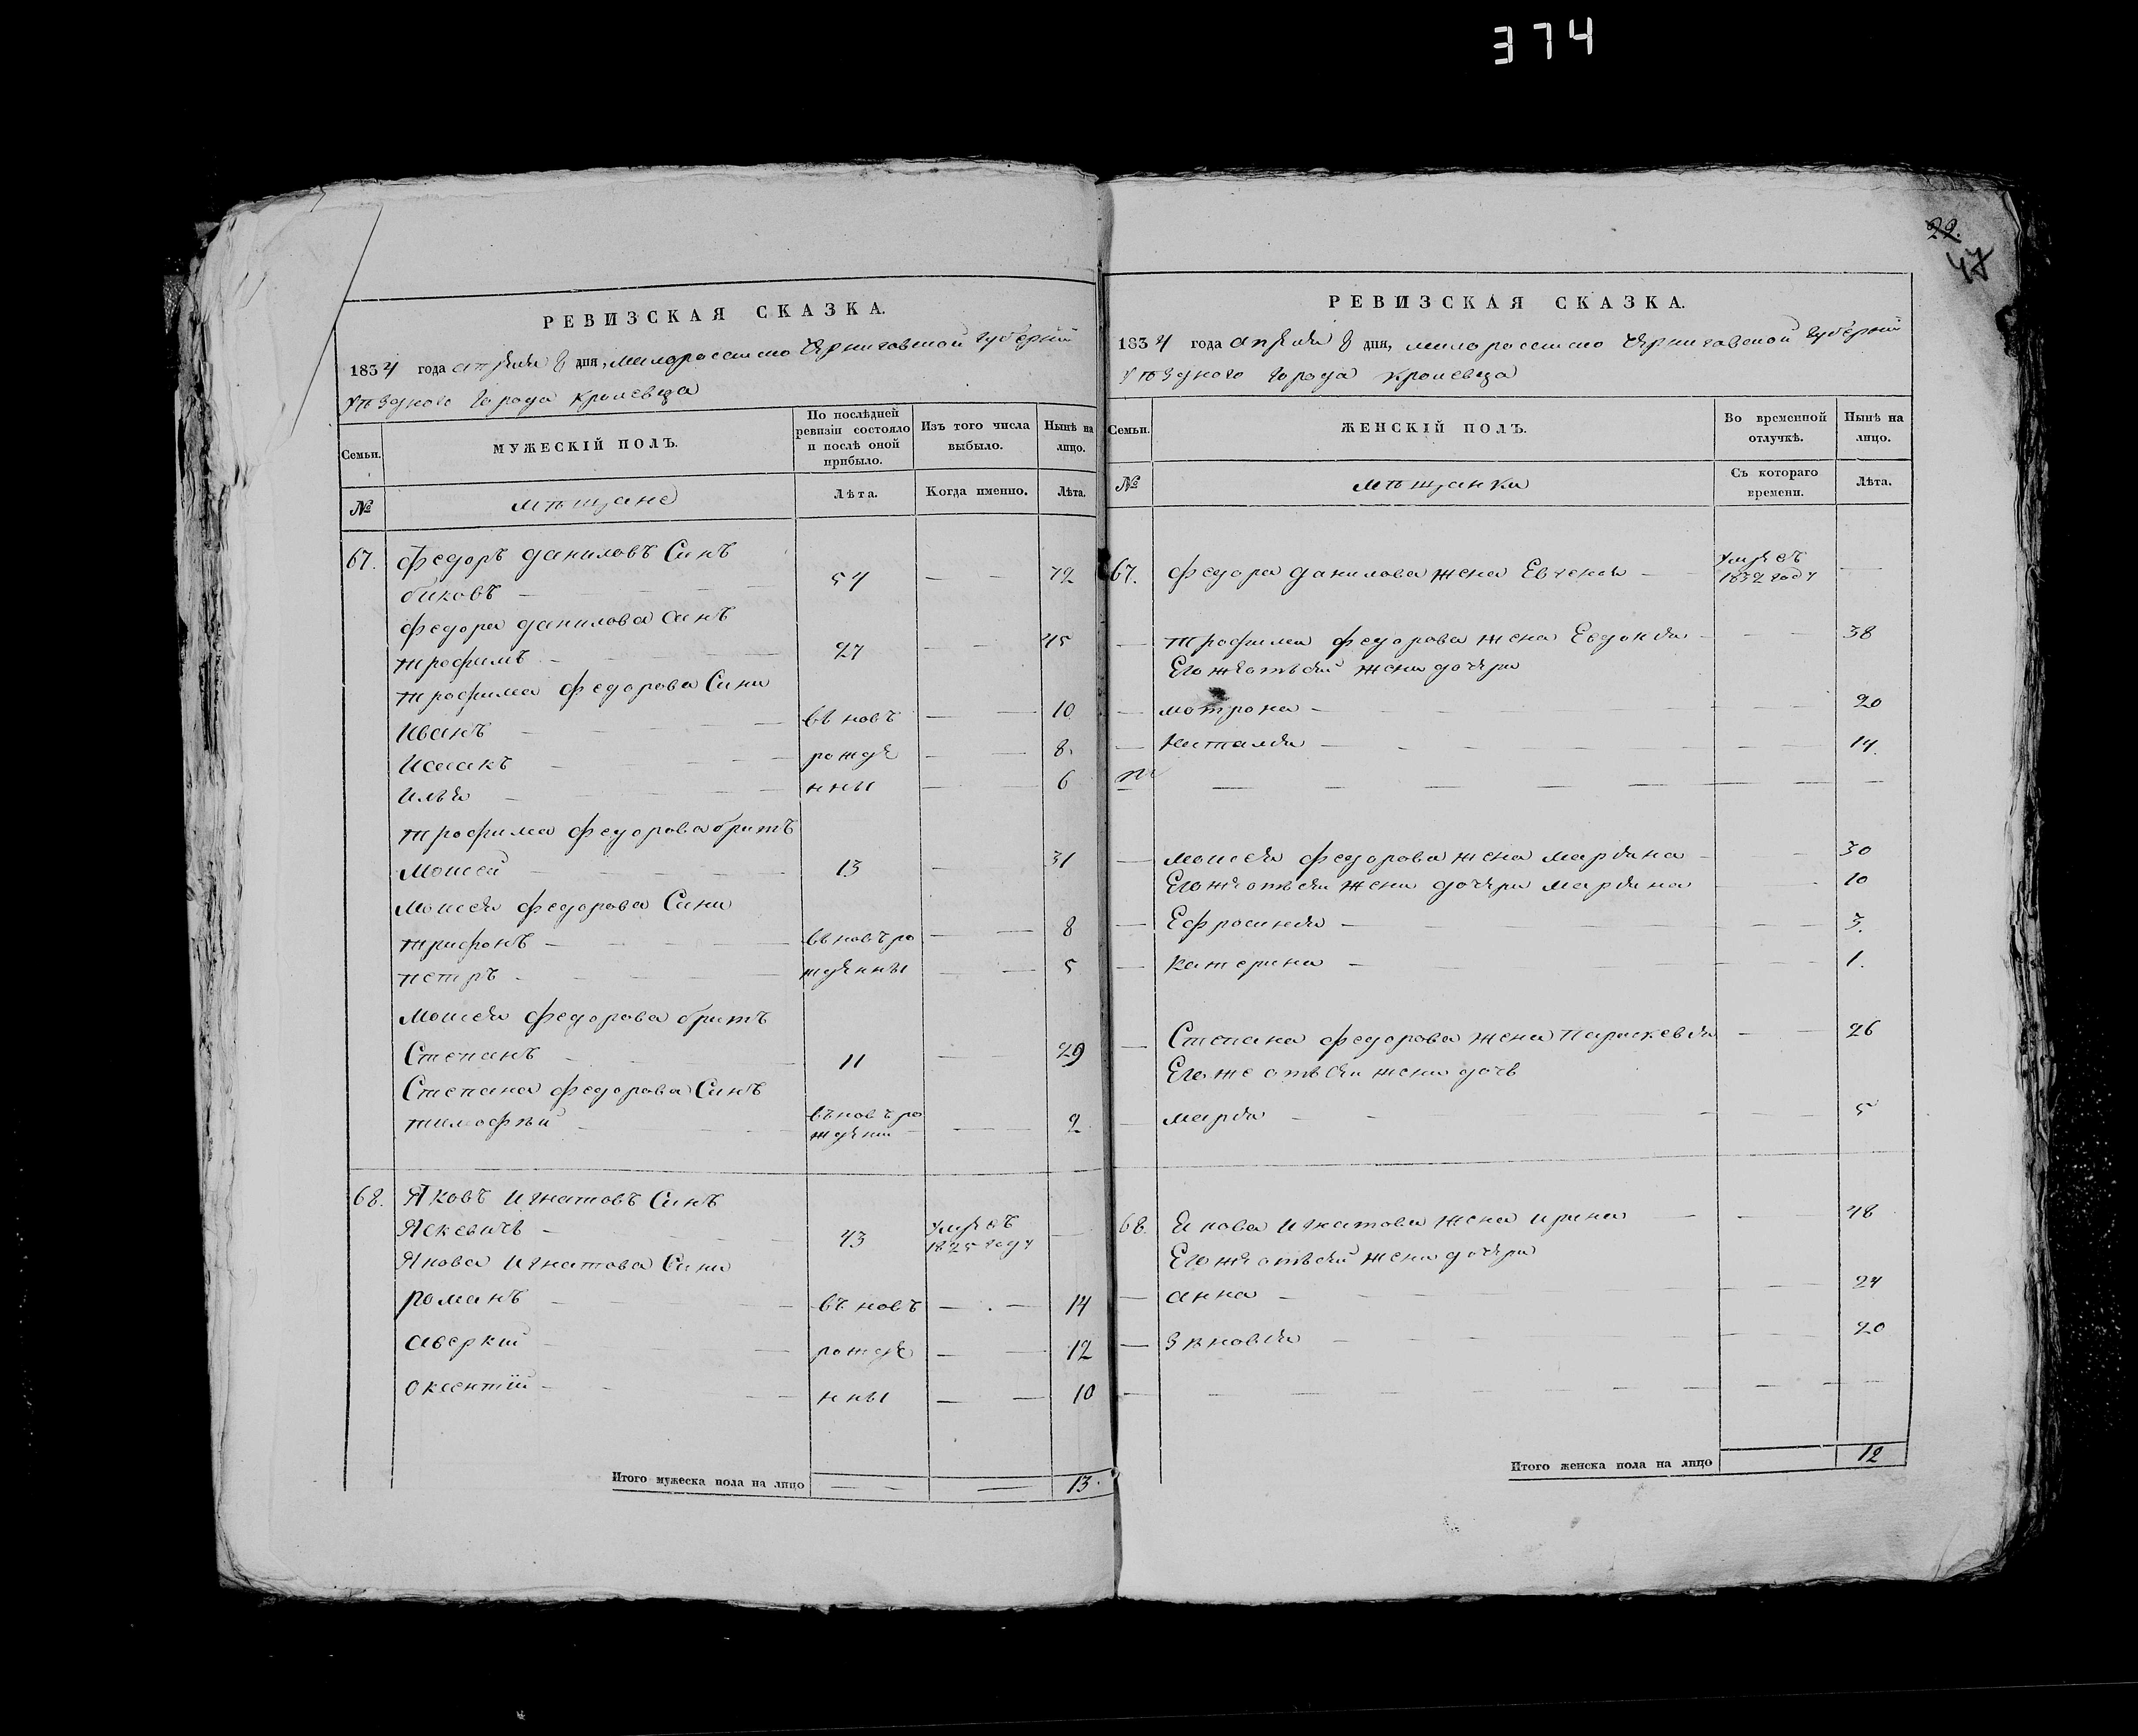 374
22.
47
РЕВИЗСКАЯ СКАЗКА.
1834 года апреля 8 дня, малороссийско Черниговской губернии
уѣздного города Кролевца
Семьи.
МУЖЕСКІЙ ПОЛЪ.
По послѣдней ревизіи состояло и послѣ оной прибыло.
Изъ того числа выбыло.
Нынѣ на лицо.
№
мѣщане
Лѣта.
Когда именно.
Лѣта.
67. Федоръ Даниловъ Синъ
биковъ — 54 — — 72
Федора Данилова синъ
трофимъ — 27 — — 45
трофима Федорова Сини
Иванъ — въ новъ — — 10
Исаакъ — рожде — — 8.
Илья — нны — — 6
трофима федорова братъ
Моисей — 13 — 31
Моисея федорова Сини
трифонъ — въ новъ ро — — 8
петръ — жденны — — 5
Моисея федорова братъ
Степанъ — 11 — 29
Степана федорова Синъ
тимофѣй — въ новъ ро жденій — — 2
68. Яковъ Игнатовъ Синъ
Яскевичъ — 43 умре въ 1825 году —
Якова Игнатова Сини
романъ — въ новъ — — 14
аверкій — рожде — — 12
Оксентій — нны — — 10
Итого мужеска пола на лицо — — 13.
РЕВИЗСКАЯ СКАЗКА.
1834 года апреля 8 дня, малороссийско Черниговской губернии
уѣздного города Кролевца
Семьи.
ЖЕНСКІЙ ПОЛЪ.
Во временной отлучкѣ.
Нынѣ на лицо.
№
мѣщанки
Съ котораго времени.
Лѣта.
67. Федора Данилова жена Евгения — 1832 году —
трофима федорова жена Евдокия — — 38
Его же отъ сей жени дочери
мотрона — — — 20
Наталия — — — 14.
моисея федорова жена марина — — 30
Его же отъ сея жени дочери марина — 10
Ефросиния — — — 3.
Катерина — — — 1.
Степана федорова жена Параскевия — — 26
Его же отъ сея жени дочь
мария — — — 5
68. Якова Игнатова жена ирина — — 48
Его же отъ сей жени дочери
анна — — — 24
Зѣновия — — — 20
Итого женска пола на лицо 12